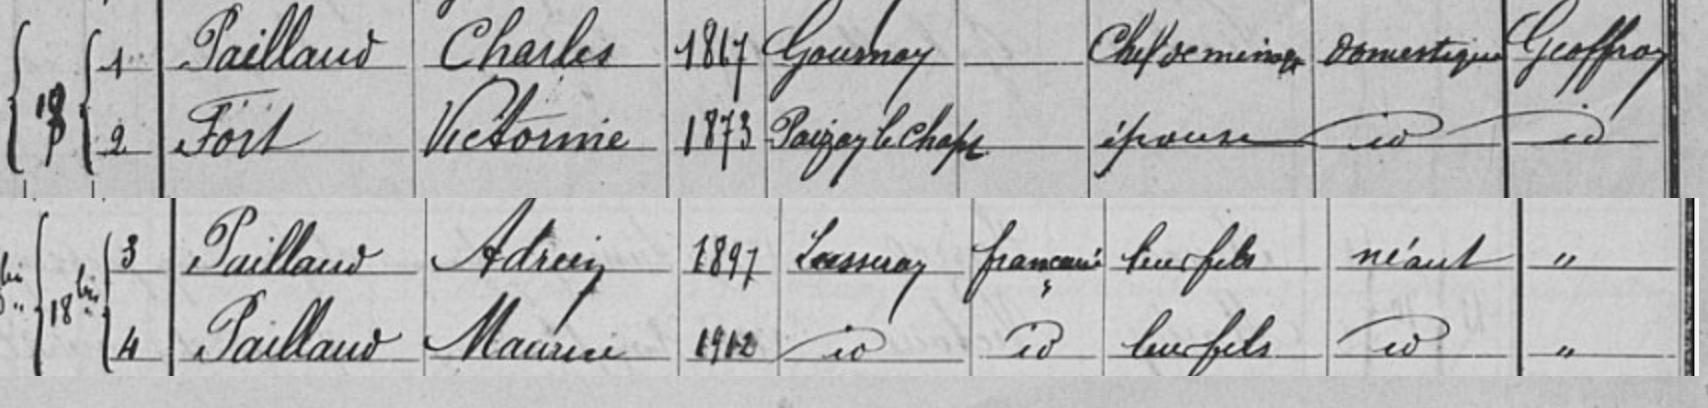 18 1 Paillaud Charles 1867 Gournay Chef de ménage domestique Geoffroy
2 Fort Victorine 1873 Paizay le Chapt épouse id id
18 bis 3 Paillaud Adrien 1897 Lusseray française leur fils néant "
4 Paillaud Maurice 1912 id id leur fils id "